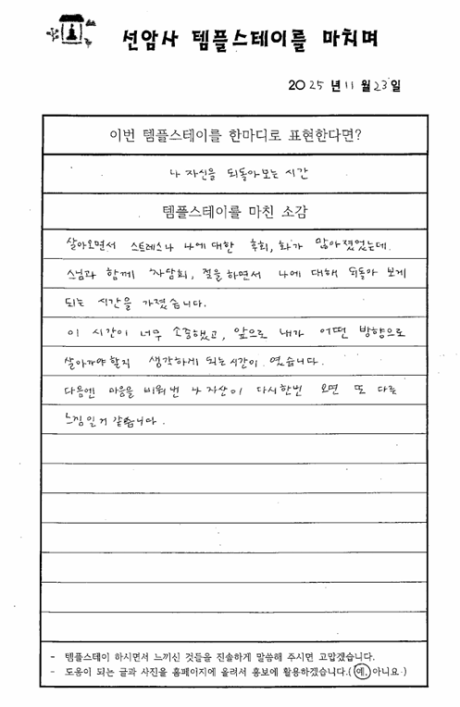 선암사 템플스테이를 마치며
2025년 11월 23일
이번 템플스테이를 한마디로 표현한다면?
나 자신을 되돌아보는 시간
템플스테이를 마친 소감
살아오면서 스트레스나 나에 대한 후회, 화가 많아졌었는데.
스님과 함께 차담회, 절을 하면서 나에 대해 되돌아 보게
되는 시간을 가졌습니다.
이 시간이 너무 소중했고, 앞으로 내가 어떤 방향으로
살아가야 할지 생각하게 되는 시간이 였습니다.
다음엔 마음을 비워 번 나 자신이 다시 한번 오면 또 다른
느낌 일거 같습니다.
- 템플스테이 하시면서 느끼신 것들을 진솔하게 말씀해 주시면 고맙겠습니다.
- 도움이 되는 글과 사진을 홈페이지에 올려서 홍보에 활용하겠습니다.(예, 아니요.)